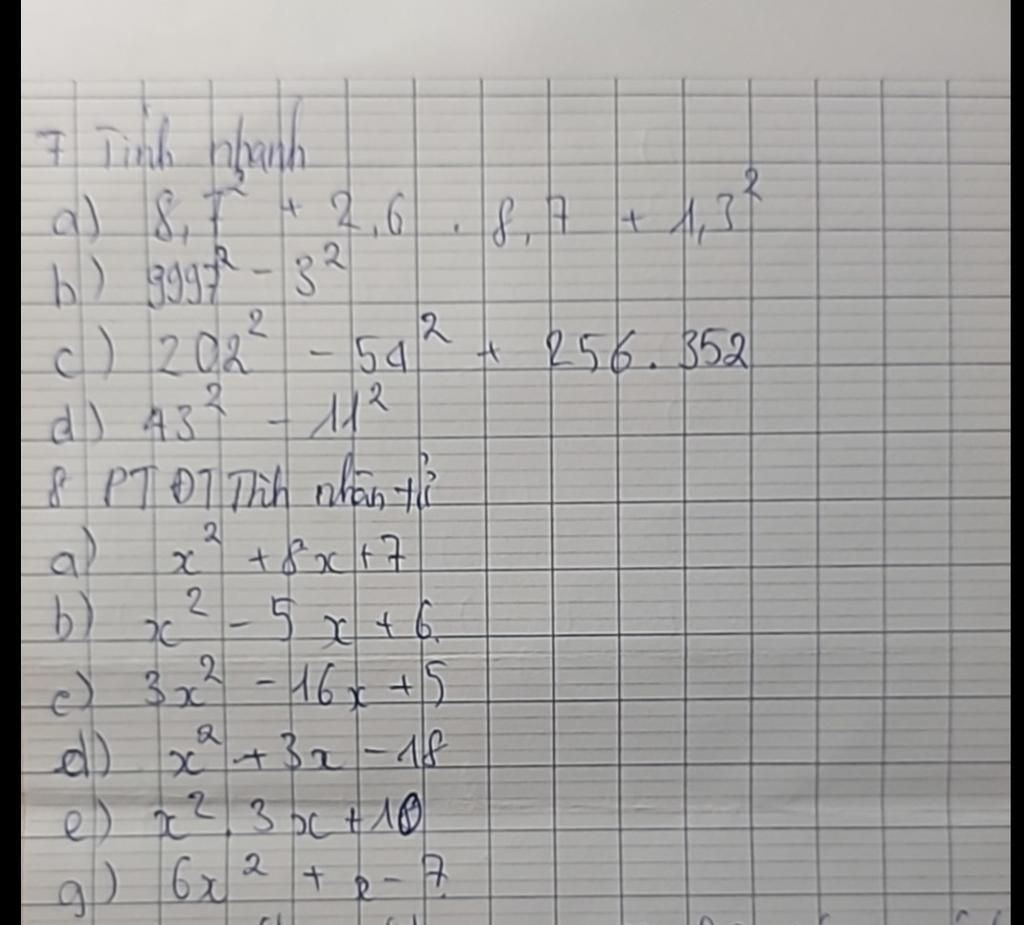 7 Tính nhanh
a) 8,7² + 2,6 . 8,7 + 1,3²
b) 9997² - 3²
c) 202² - 54² + 256 . 352
d) 43² - 11²
8 PT ĐT Thành nhân tử
a) x² + 8x + 7
b) x² - 5x + 6
c) 3x² - 16x + 5
d) x² + 3x - 18
e) x². 3x + 10
g) 6x² + x - 7